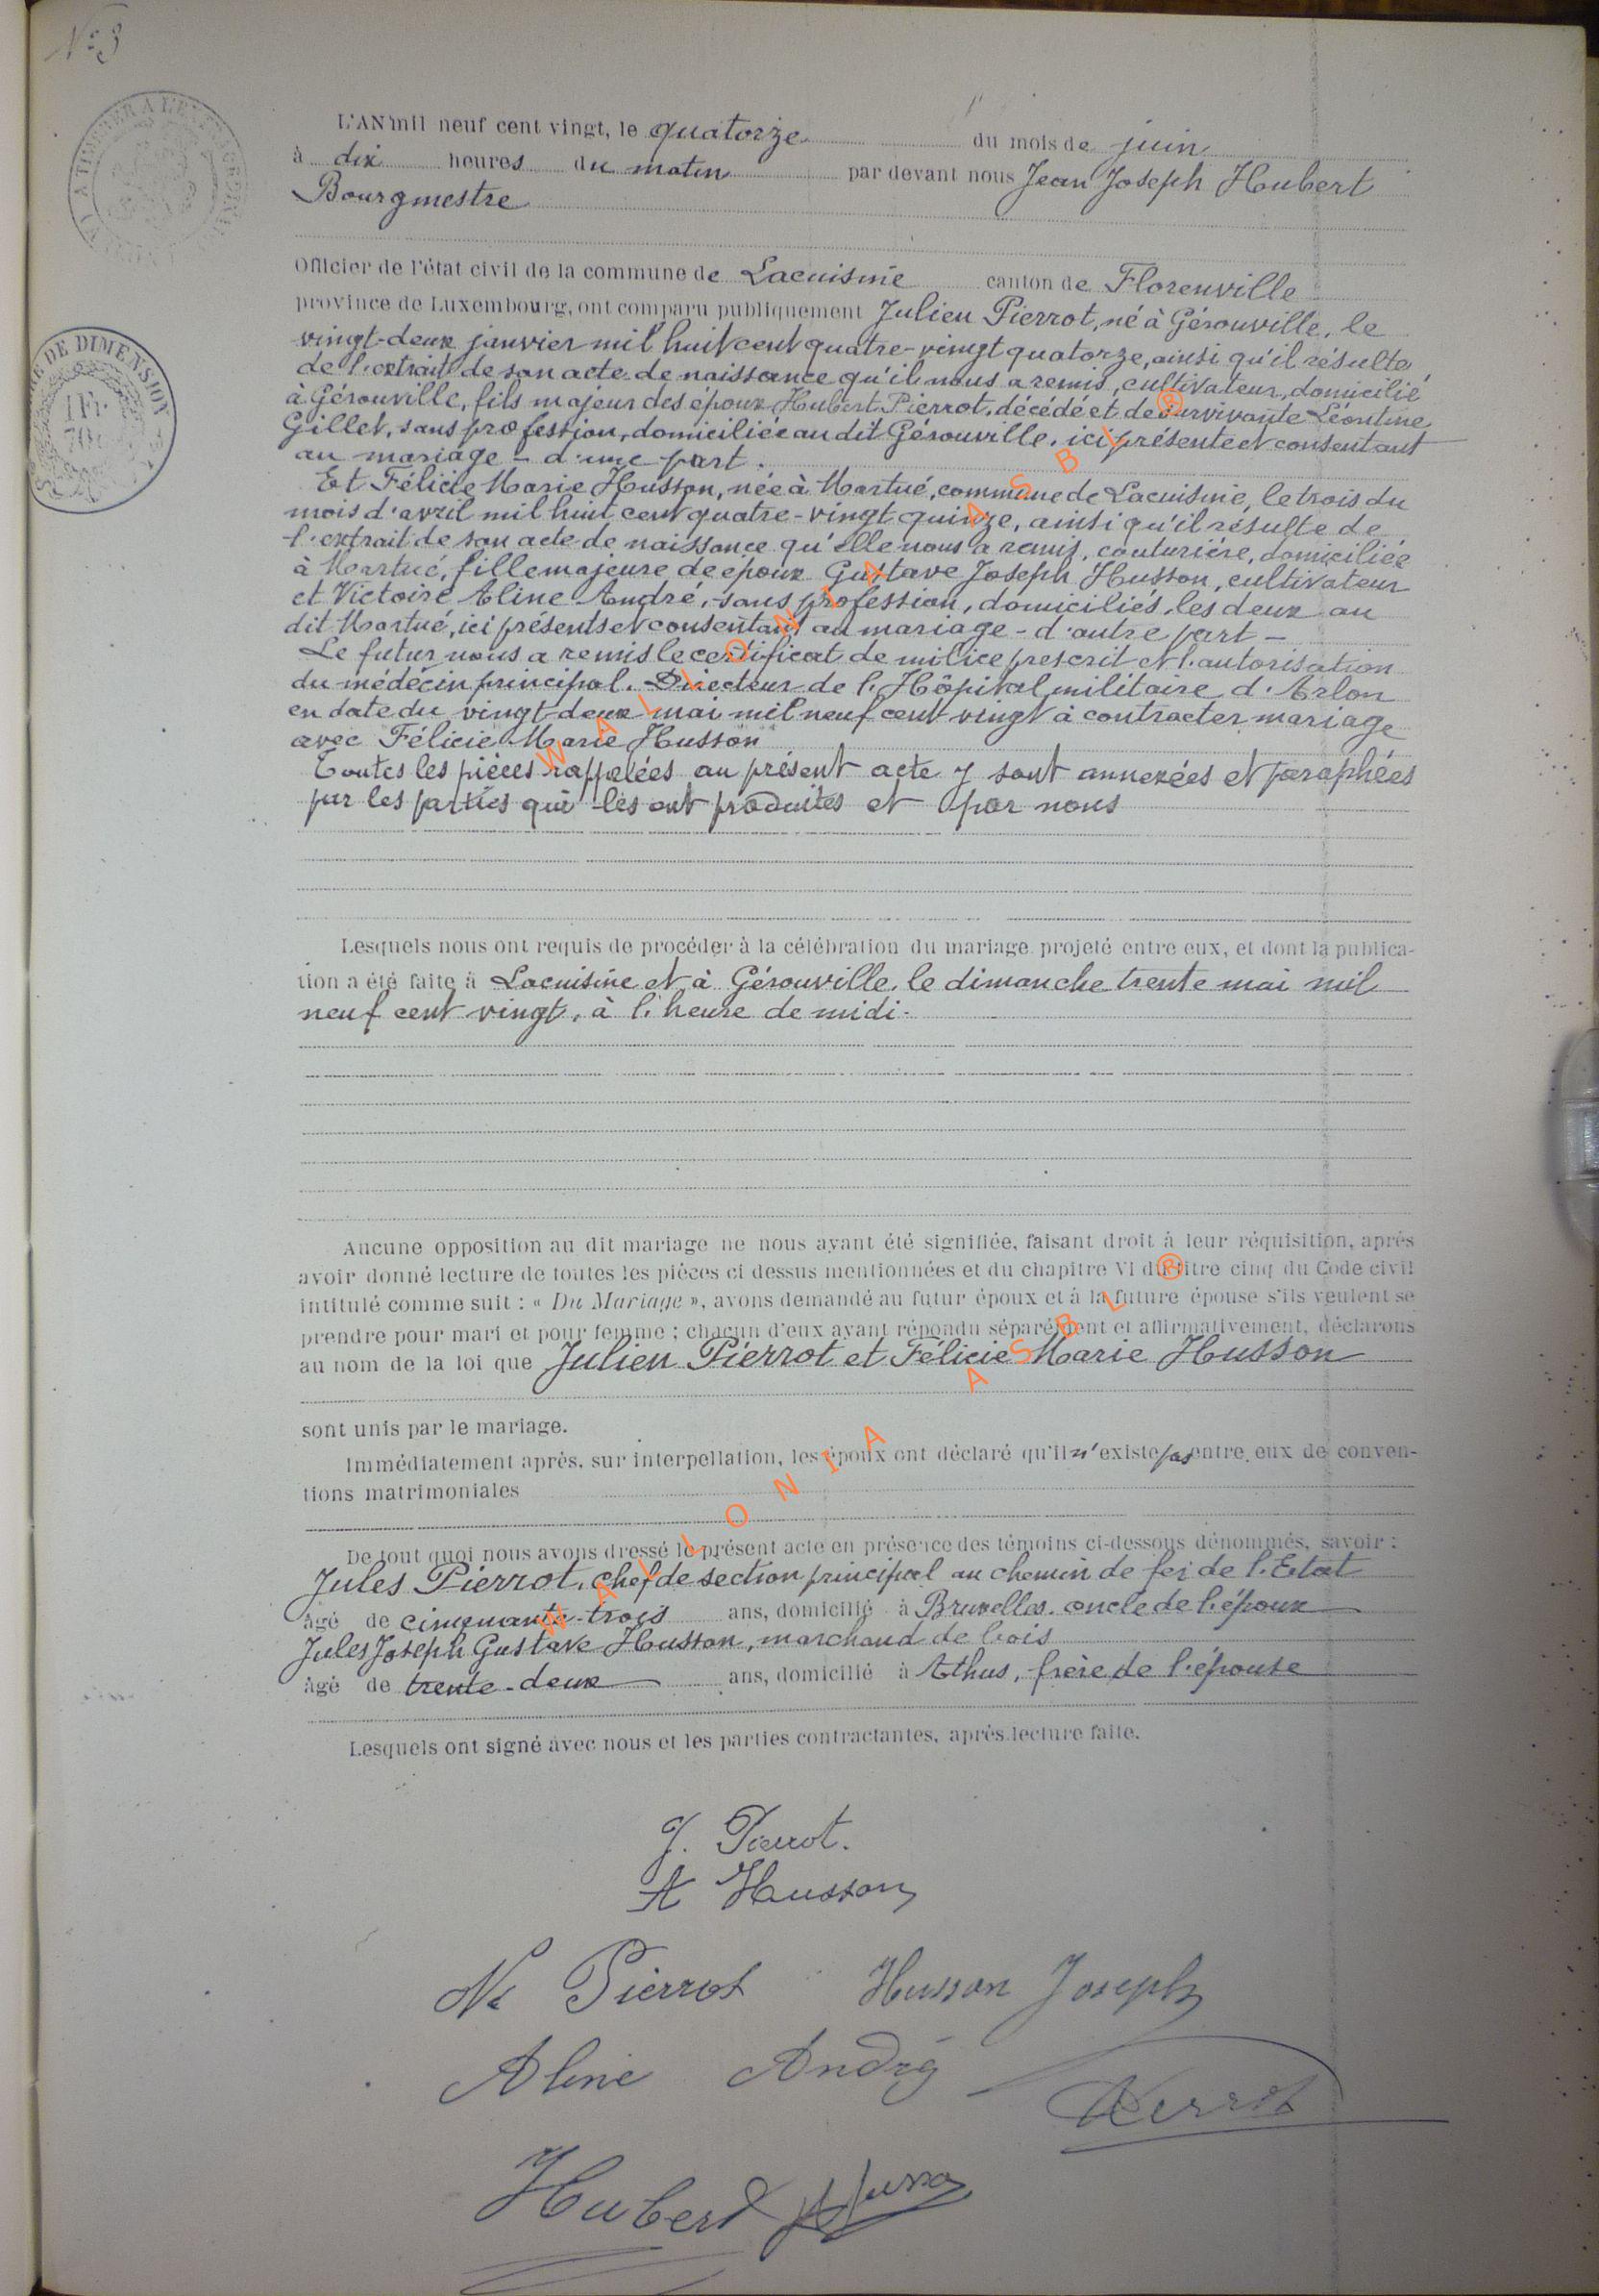 N° 3
L'AN mil neuf cent vingt, le quatorze du mois de juin
à dix heures du matin par devant nous Jean Joseph Hubert
Bourgmestre
Officier de l'état civil de la commune de Lacuisine canton de Florenville
province de Luxembourg, ont comparu publiquement Julien Pierrot, né à Gérouville, le
vingt-deux janvier mil huit cent quatre-vingt quatorze, ainsi qu'il résulte
de l'extrait de son acte de naissance qu'il nous a remis, cultivateur, domicilié
à Gérouville, fils majeur des époux Hubert Pierrot, décédé et de survivante Léontine
Gillet, sans profession, domiciliée au dit Gérouville, ici présente et consentant
au mariage - d'une part.
Et Félicie Marie Husson, née à Martué, commune de Lacuisine, le trois du
mois d'avril mil huit cent quatre-vingt quinze, ainsi qu'il résulte de
l'extrait de son acte de naissance qu'elle nous a remis, couturière, domiciliée
à Martué, fille majeure de époux Gustave Joseph Husson, cultivateur
et Victoire Aline André, sans profession, domiciliés, les deux au
dit Martué, ici présents et consentant au mariage - d'autre part -
Le futur nous a remis le certificat de milice prescrit et l'autorisation
du médecin principal. Directeur de l'Hôpital militaire d'Arlon
en date du vingt-deux mai mil neuf cent vingt à contracter mariage
avec Félicie Marie Husson
Toutes les pièces rappelées au présent acte y sont annexées et paraphées
par les parties qui les ont produites et par nous
Lesquels nous ont requis de procéder à la célébration du mariage projeté entre eux, et dont la publica-
tion a été faite à Lacuisine et à Gérouville, le dimanche trente mai mil
neuf cent vingt, à l'heure de midi.
Aucune opposition au dit mariage ne nous ayant été signifiée, faisant droit à leur réquisition, après
avoir donné lecture de toutes les pièces ci dessus mentionnées et du chapitre VI du titre cinq du Code civil
intitulé comme suit : « Du Mariage », avons demandé au futur époux et à la future épouse s'ils veulent se
prendre pour mari et pour femme ; chacun d'eux ayant répondu séparément et affirmativement, déclarons
au nom de la loi que Julien Pierrot et Félicie Marie Husson
sont unis par le mariage.
Immédiatement après, sur interpellation, les époux ont déclaré qu'il n'existe pas entre eux de conven-
tions matrimoniales
De tout quoi nous avons dressé le présent acte en présence des témoins ci-dessous dénommés, savoir :
Jules Pierrot, chef de section principal au chemin de fer de l'Etat
âgé de cinquante-trois ans, domicilié à Bruxelles, oncle de l'époux
Jules Joseph Gustave Husson, marchand de bois
âgé de trente-deux ans, domicilié à Athus, frère de l'épouse
Lesquels ont signé avec nous et les parties contractantes, après lecture faite.
J. Pierrot.
Husson
Pierrot Husson Joseph
Aline André
Hubert
DE DIMENSION
1 Fr
WALLONIA ASBL ®
WALLONIA ASBL ®